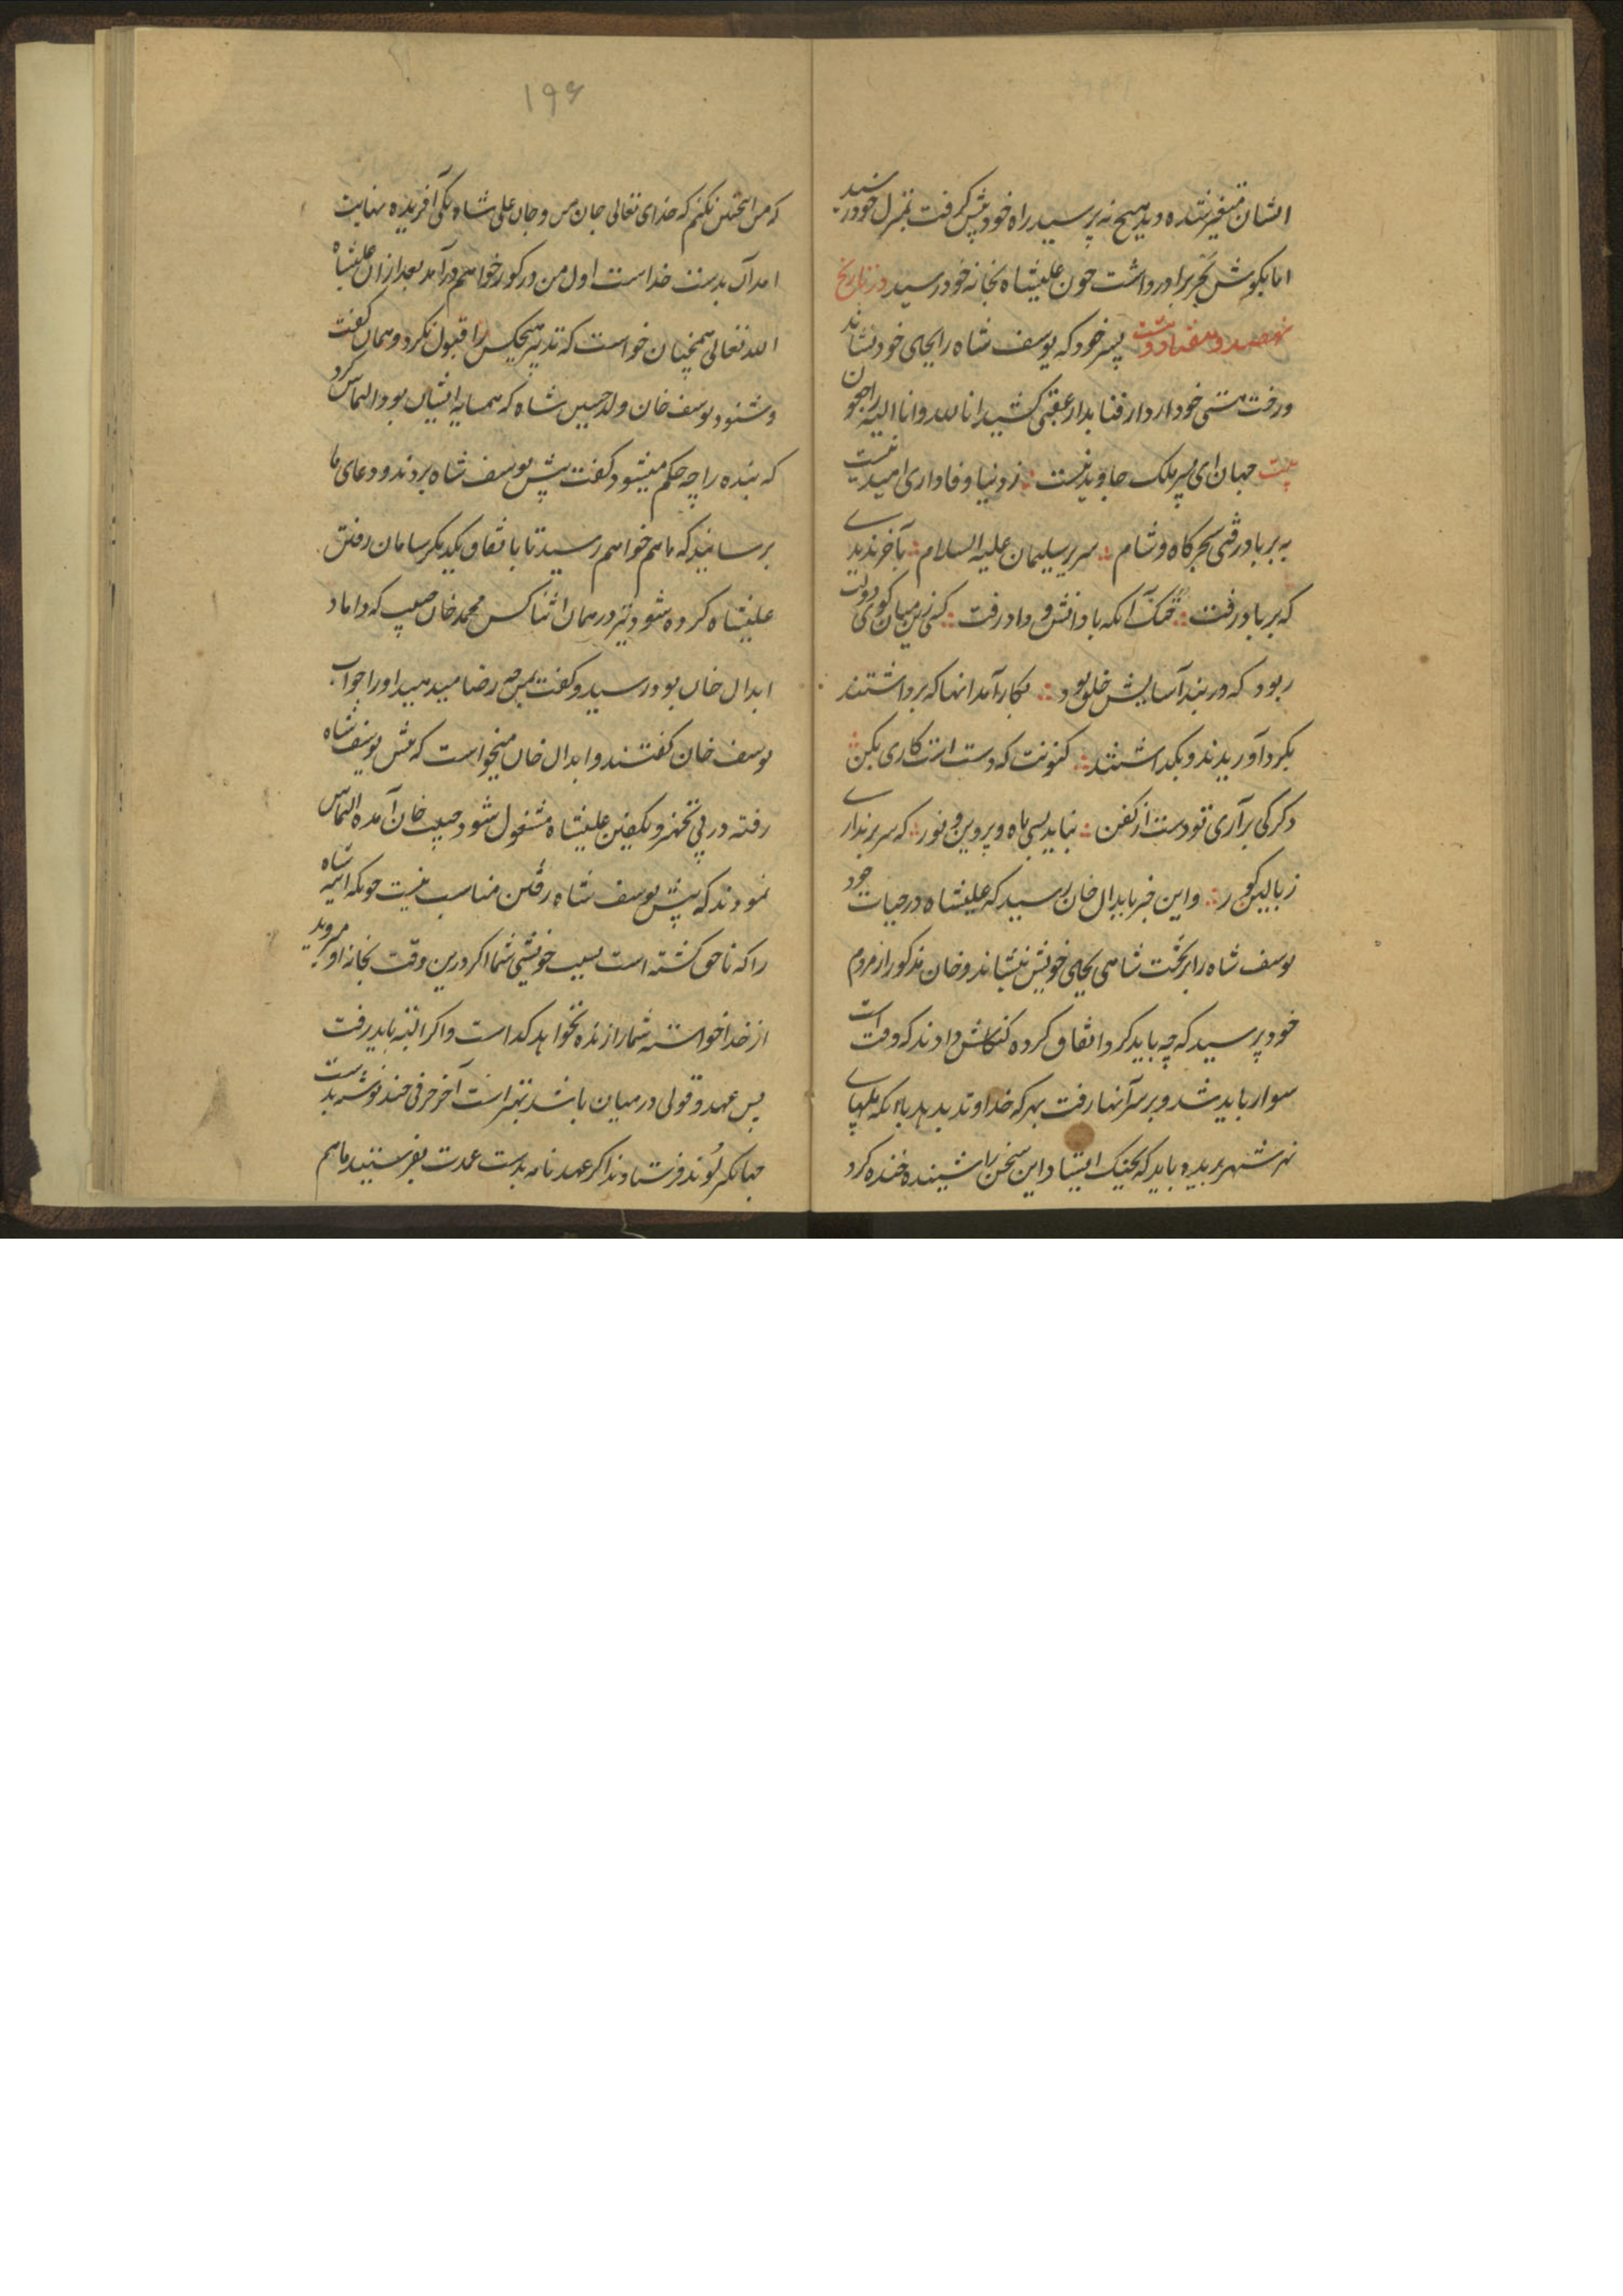 ایشان متغیر شده دید هیچ نه پرسید راه خود پیش گرفت بمنزل خود رسید
اما بگوش تجربر برادر داشت چون علیشاه بخانه خود رسید در تاریخ
نهصد و هفتاد و شش پسر خود که یوسف شاه را بجای خود نشاند
و رخت هستی خود از دار فنا بدار عقبی کشید انا لله و انا الیه راجعون
بیت جهان ای پسر ملک جاوید نیست ؛ ز دنیا وفاداری امید نیست
نه بر باد رفتی سحرگاه و شام ؛ سریر سلیمان علیه السلام ؛ بآخر ندیدی
که بر باد رفت ؛ خنک آنکه با دانش و داد رفت ؛ کسی زین میان گوی دولت
ربود که در بند آسایش خلق بود ؛ بکار آمد آنها که برداشتند
بگرد آوریدند و بگذاشتند ؛ کنونت که دست است کاری بکن ؛
دگر کی برآری تو دست از کفن ؛ بتابد بسی ماه و پروین و نور ؛ که سر بر نداری
ز بالین گور ؛ و این خبر بابدال خان رسید که علیشاه در حیات خود
یوسف شاه را بر تخت شاهی بجای خویش بنشاند و خان مذکور از مردم
خود پرسید که چه باید کرد اتفاق کرده کنکاش دادند که وقت است
سوار باید شد و بر سر آنها رفت بهر که خداوند بدهد
شهر بدید و باید که بجنگ ایستاد این سخن را شنیده خنده کرد
۱۹۶
که من این نکنم که خدای تعالی جان من و جان علی شاه یکی آفریده نهایت
امدآن بدست خداست اول من در گور خواهم درآمد بعد از آن علیشاه
الله تعالی همچنان خواست که تدبیر هیچکس را قبول نکرد و همان گفت
و شنود یوسف خان ولد حسین شاه که همسایه ایشان بود التماس کرد
که بنده را چه حکم میشود گفت پیش یوسف شاه بروند و دعای ما
برسانید که ما هم خواهم رسید تا باتفاق یکدیگر سامان رفتن
علیشاه کرده شود در همان اثنا کس محمد خان که داماد
ابدال خان بود رسید و گفت بمن چه رضا میدهید او را جواب
یوسف خان گفتند و ابدال خان میخواست که پیش یوسف شاه
رفته در پی تجهیز و تکفین علیشاه مشغول شود حبیب خان آمده التماس
نمودند که پیش یوسف شاه رفتن مناسب نیست چونکه ایبه شاه
را که ناحق کشته است بسبب خویشی شما اگر درین وقت بخانه او میروید
از خدا خواسته شما را زنده نخواهد گذاشت و اگر البته باید رفت
پس عهد و قولی در میان باشد بهتر است آخر حرفی چند نوشته بدست
جهانگیر لوند فرستادند اگر عهدنامه بدست عمدت بفرستید ما هم